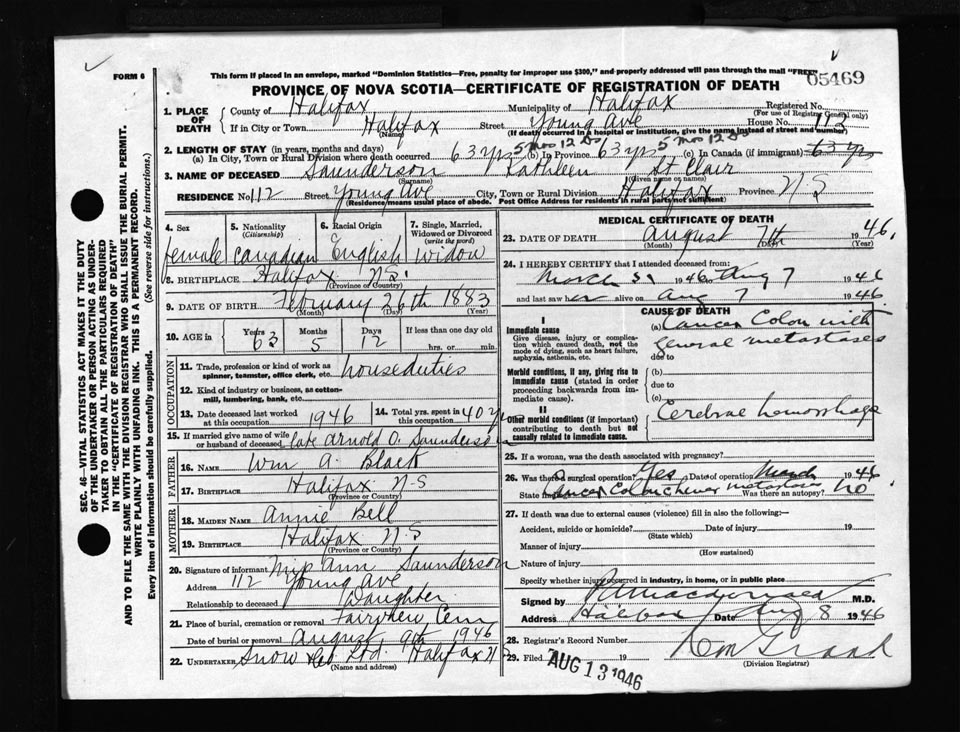 FORM 6
This form if placed in an envelope, marked "Dominion Statistics—Free, penalty for improper use $300," and properly addressed will pass through the mail "FREE"
05469
PROVINCE OF NOVA SCOTIA—CERTIFICATE OF REGISTRATION OF DEATH
1. PLACE OF DEATH
County of Halifax Municipality of Halifax Registered No.
(For use of Registrar General only)
If in City or Town Halifax Street Young Ave House No. 112
(Name) (If death occurred in a hospital or institution, give the name instead of street and number)
2. LENGTH OF STAY (in years, months and days) 5 Mos 12 Ds 5 Mos 12 Ds
(a) In City, Town or Rural Division where death occurred 63 yrs (b) In Province 63 yrs (c) In Canada (if immigrant) 63 yrs
3. NAME OF DECEASED Saunderson Kathleen St Clair
(Surname) (Given name or names)
RESIDENCE No. 112 Street Young Ave City, Town or Rural Division Halifax Province N S
(Residence means usual place of abode. Post Office Address for residents in rural parts not sufficient)
4. Sex
female
5. Nationality
(Citizenship)
Canadian
6. Racial Origin
English
7. Single, Married, Widowed or Divorced
(write the word)
Widow
8. BIRTHPLACE Halifax N S.
(Province or Country)
9. DATE OF BIRTH February 26th 1883
(Month) (Day) (Year)
10. AGE in
Years Months Days If less than one day old
63 5 12 hrs. or min.
OCCUPATION
11. Trade, profession or kind of work as spinner, teamster, office clerk, etc. houseduties
12. Kind of industry or business, as cotton-mill, lumbering, bank, etc.
13. Date deceased last worked at this occupation 1946
14. Total yrs. spent in this occupation 40 y
15. If married give name of wife or husband of deceased late Arnold O. Saunderson
FATHER
16. Name Wm A. Black
17. Birthplace Halifax N-S
(Province or Country)
MOTHER
18. Maiden Name Annie Bell
19. Birthplace Halifax N-S
(Province or Country)
20. Signature of informant Ann Saunderson
Address 112 Young Ave
Relationship to deceased Daughter
21. Place of burial, cremation or removal Fairview Cem
Date of burial or removal August 9th 1946
22. Undertaker Snow & Co. Ltd. Halifax N S
(Name and address)
MEDICAL CERTIFICATE OF DEATH
23. DATE OF DEATH August 7th 1946.
(Month) (Date) (Year)
24. I HEREBY CERTIFY that I attended deceased from:
March 31 1946 to Aug 7 1946
and last saw her alive on Aug 7 1946
CAUSE OF DEATH
I
Immediate cause
Give disease, injury or complication which caused death, not the mode of dying, such as heart failure, asphyxia, asthenia, etc.
(a) Cancer Colon with
General metastases
due to
Morbid conditions, if any, giving rise to immediate cause (stated in order proceeding backwards from immediate cause).
(b)
due to
(c)
II
Other morbid conditions (if important) contributing to death but not causally related to immediate cause.
Cerebral hemorrhage
25. If a woman, was the death associated with pregnancy?
26. Was there a surgical operation? Yes Date of operation March 1946
State findings Cancer Colon metastases Was there an autopsy? no
27. If death was due to external causes (violence) fill in also the following:—
Accident, suicide or homicide? Date of injury 19
(State which)
Manner of injury
(How sustained)
Nature of injury
Specify whether injury occurred in industry, in home, or in public place
Signed by Macdonald M.D.
Address Halifax Date Aug 8 1946
28. Registrar's Record Number
29. Filed AUG 13 1946 19
(Division Registrar)
SEC. 46—VITAL STATISTICS ACT MAKES IT THE DUTY OF THE UNDERTAKER OR PERSON ACTING AS UNDERTAKER TO OBTAIN ALL THE PARTICULARS REQUIRED IN THE "CERTIFICATE OF REGISTRATION OF DEATH"
AND TO FILE THE SAME WITH THE DIVISION REGISTRAR WHO SHALL ISSUE THE BURIAL PERMIT.
WRITE PLAINLY WITH UNFADING INK. THIS IS A PERMANENT RECORD.
Every item of information should be carefully supplied. (See reverse side for instructions.)